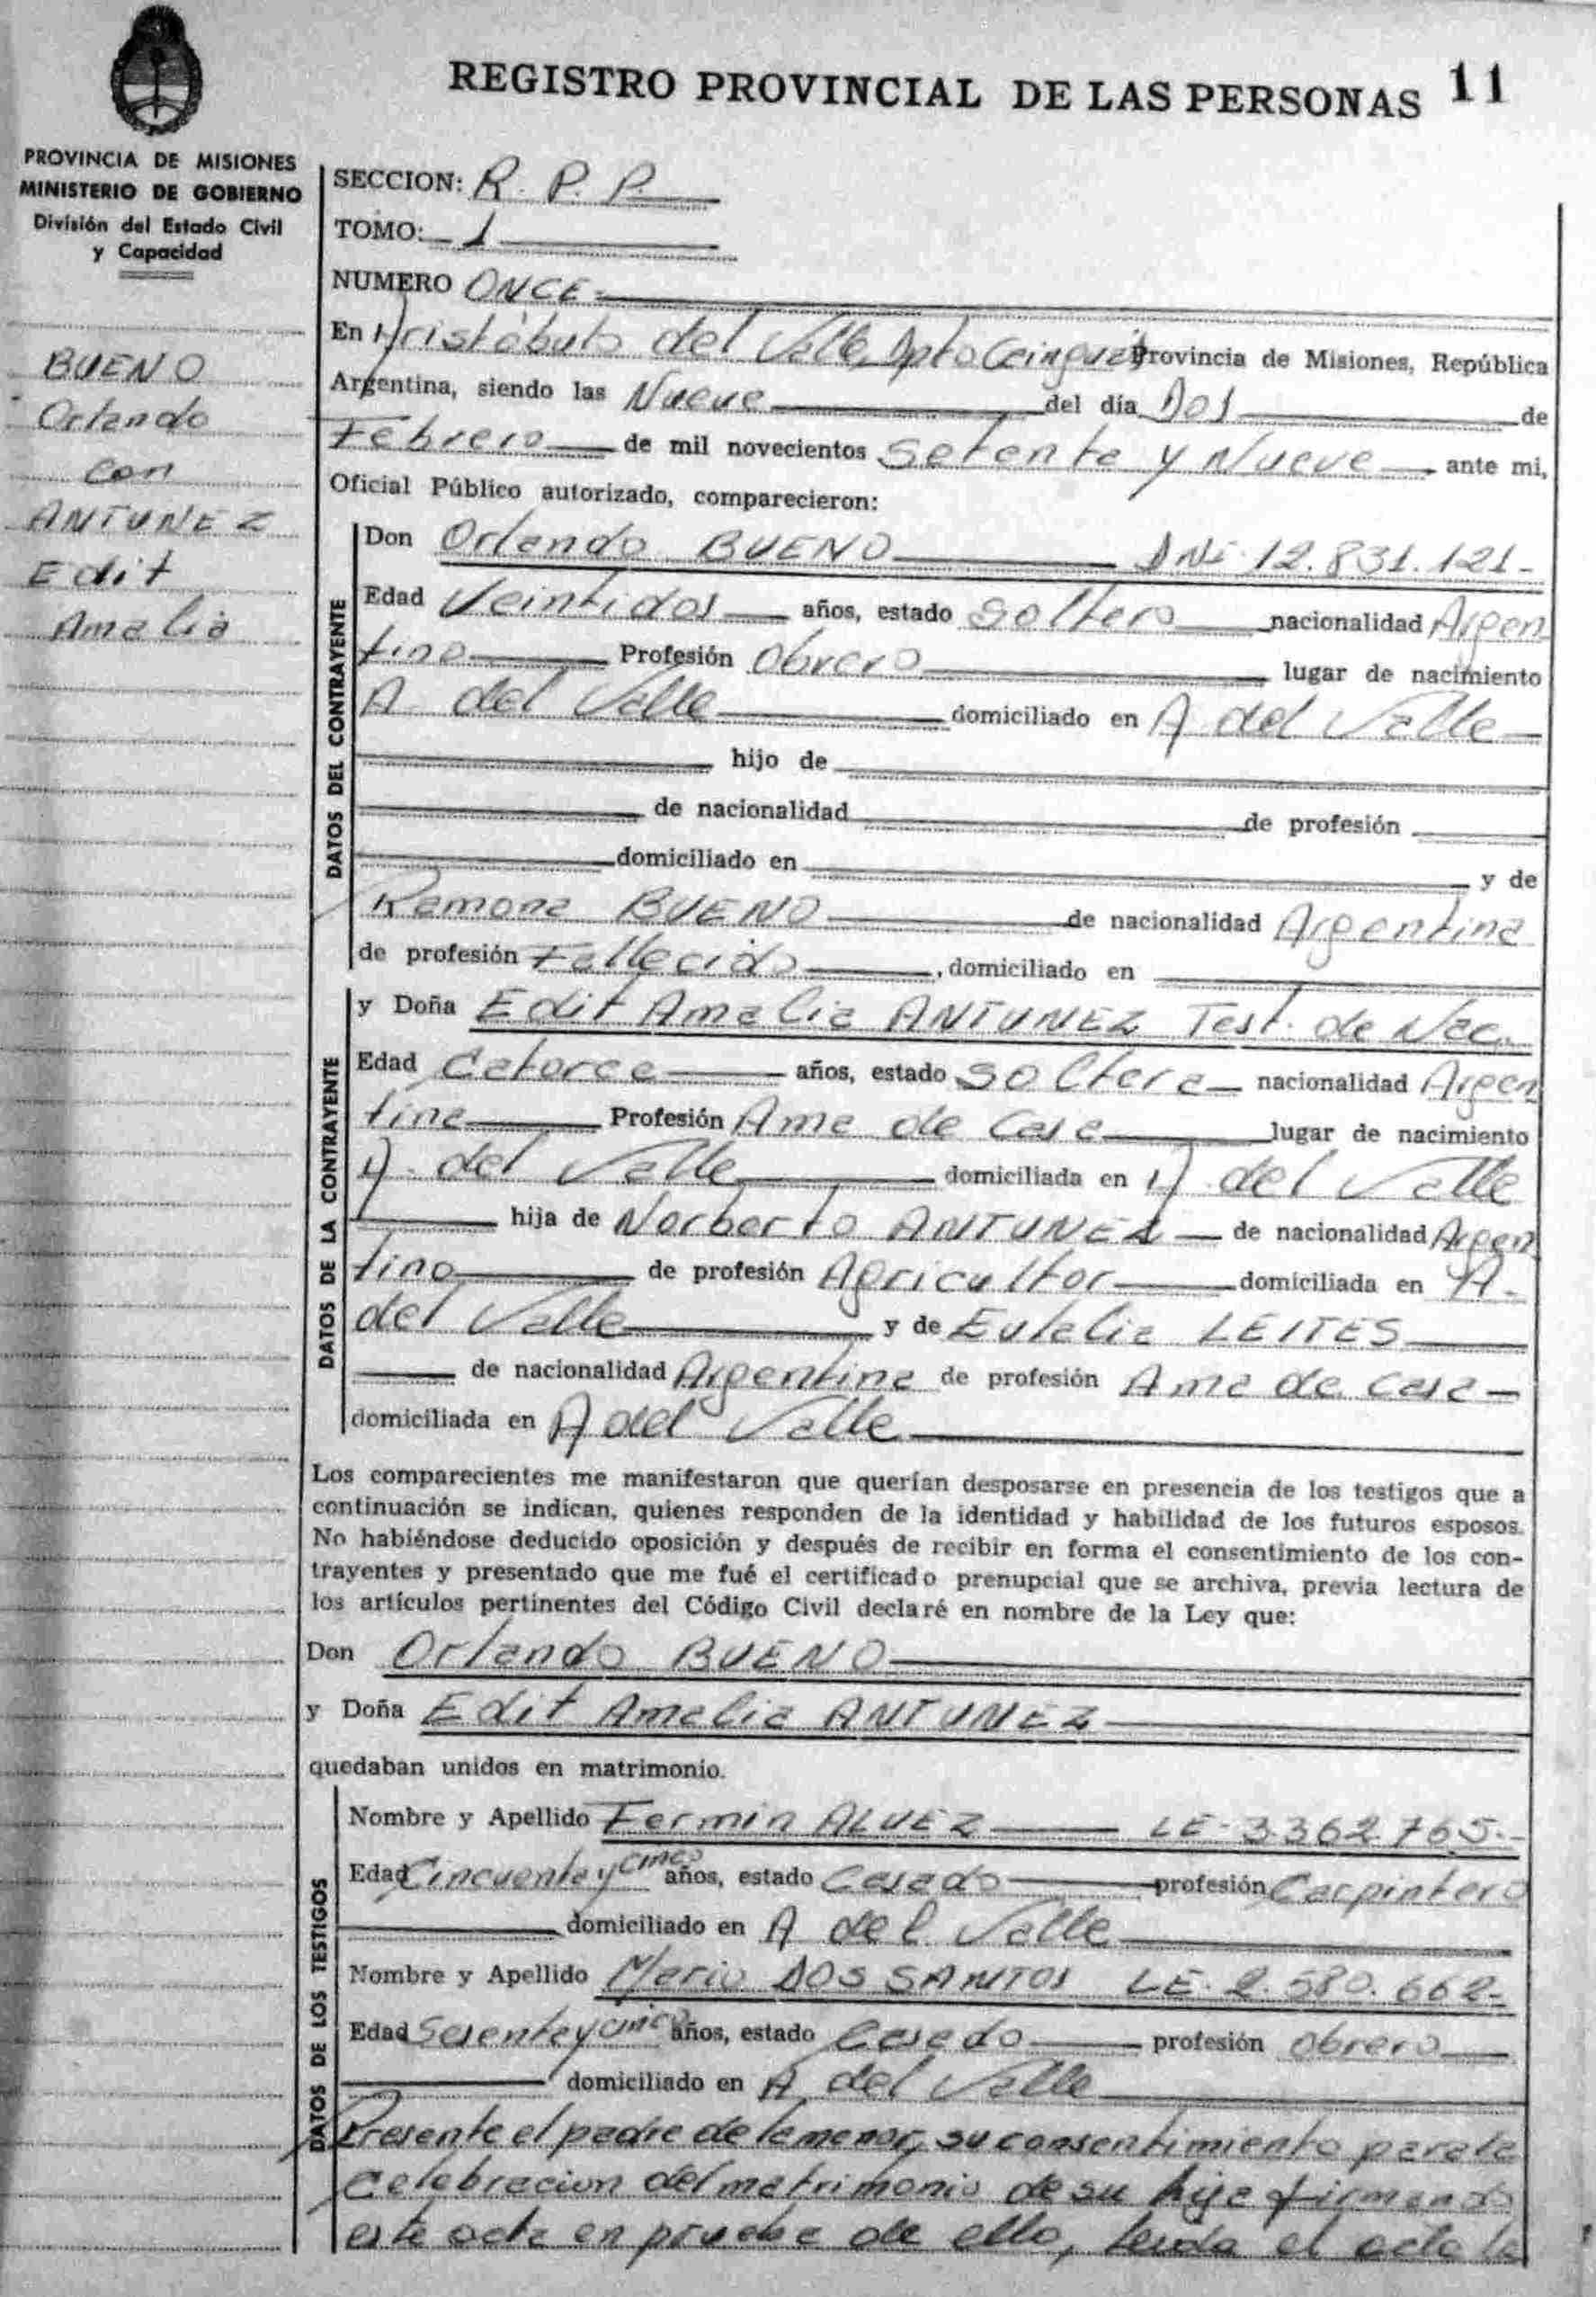 REGISTRO PROVINCIAL DE LAS PERSONAS 11
PROVINCIA DE MISIONES
MINISTERIO DE GOBIERNO
División del Estado Civil
y Capacidad
BUENO
Orlando
con
ANTUNEZ
Edit
Amalia
SECCION: R. P. P.
TOMO: 1
NUMERO ONCE
En Aristóbulo del Valle, Dpto Cainguás Provincia de Misiones, República
Argentina, siendo las Nueve del día Dos de
Febrero de mil novecientos Setenta y Nueve ante mi,
Oficial Público autorizado, comparecieron:
DATOS DEL CONTRAYENTE
Don Orlando BUENO DNI 12.831.121-
Edad Veintidos años, estado Soltero nacionalidad Argen
tino Profesión Obrero lugar de nacimiento
A. del Valle domiciliado en A del Valle
hijo de
de nacionalidad de profesión
domiciliado en y de
Ramona BUENO de nacionalidad Argentina
de profesión Fallecido, domiciliado en
DATOS DE LA CONTRAYENTE
y Doña Edit Amalia ANTUNEZ Test. de Nac.
Edad Catorce años, estado Soltera nacionalidad Argen
tina Profesión Ama de Casa lugar de nacimiento
A. del Valle domiciliada en A. del Valle
hija de Norberto ANTUNEZ de nacionalidad Argen
tino de profesión Agricultor domiciliada en A.
del Valle y de Eulalia LEITES
de nacionalidad Argentina de profesión Ama de Casa
domiciliada en A del Valle
Los comparecientes me manifestaron que querían desposarse en presencia de los testigos que a
continuación se indican, quienes responden de la identidad y habilidad de los futuros esposos.
No habiéndose deducido oposición y después de recibir en forma el consentimiento de los con-
trayentes y presentado que me fué el certificado prenupcial que se archiva, previa lectura de
los artículos pertinentes del Código Civil declaré en nombre de la Ley que:
Don Orlando BUENO
y Doña Edit Amalia ANTUNEZ
quedaban unidos en matrimonio.
DATOS DE LOS TESTIGOS
Nombre y Apellido Fermin ALVEZ LE- 3.362.765.-
Edad Cincuenta y cinco años, estado Casado profesión Carpintero
domiciliado en A del Valle
Nombre y Apellido Mario DOS SANTOS LE- 2.580.662-
Edad Sesenta y cinco años, estado Casado profesión Obrero
domiciliado en A del Valle
Presente el padre de la menor, su consentimiento para la
celebracion del matrimonio de su hija firmando
este acta en prueba de ello, leida el acta la